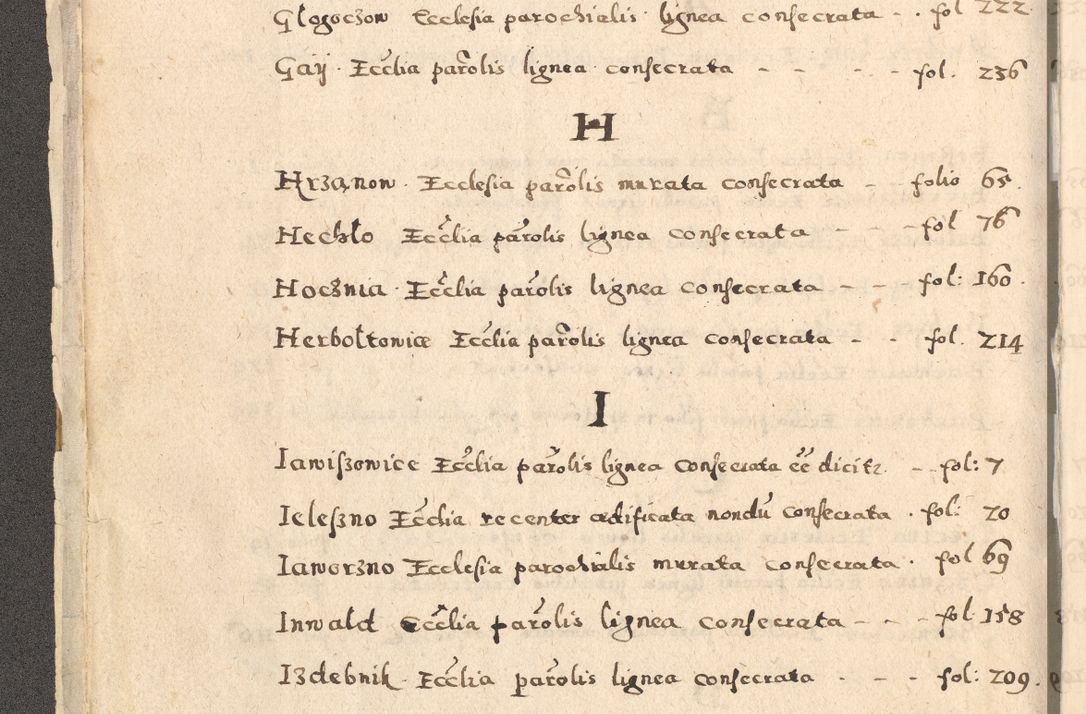 Głogoczow Ecclesia parochialis lignea consecrata - . fol 222
Gaij . Eccłia parolis lignea consecrata - - - - - fol. 236
H
Hrzanow . Ecclesia parolis murata consecrata - - folio 65.
Hechło Eccłia parolis lignea consecrata - - - fol 76
Hocznia . Eccłia parolis lignea consecrata - - - fol: 160.
Herbołtowice Eccłia parolis lignea consecrata - - - fol. 214
I
Iawiszowice Eccłia parolis lignea consecrata eē dicitr - - fol: 7
Ieleszno Eccłia recenter ædificata nondū consecrata . fol: 20
Iaworzno Ecclesia parochialis murata consecrata . fol 69
Inwałd Eccłia parolis lignea consecrata - - - fol: 158
Izdebnik . Eccłia parolis lignea consecrata - - - fol: 209.